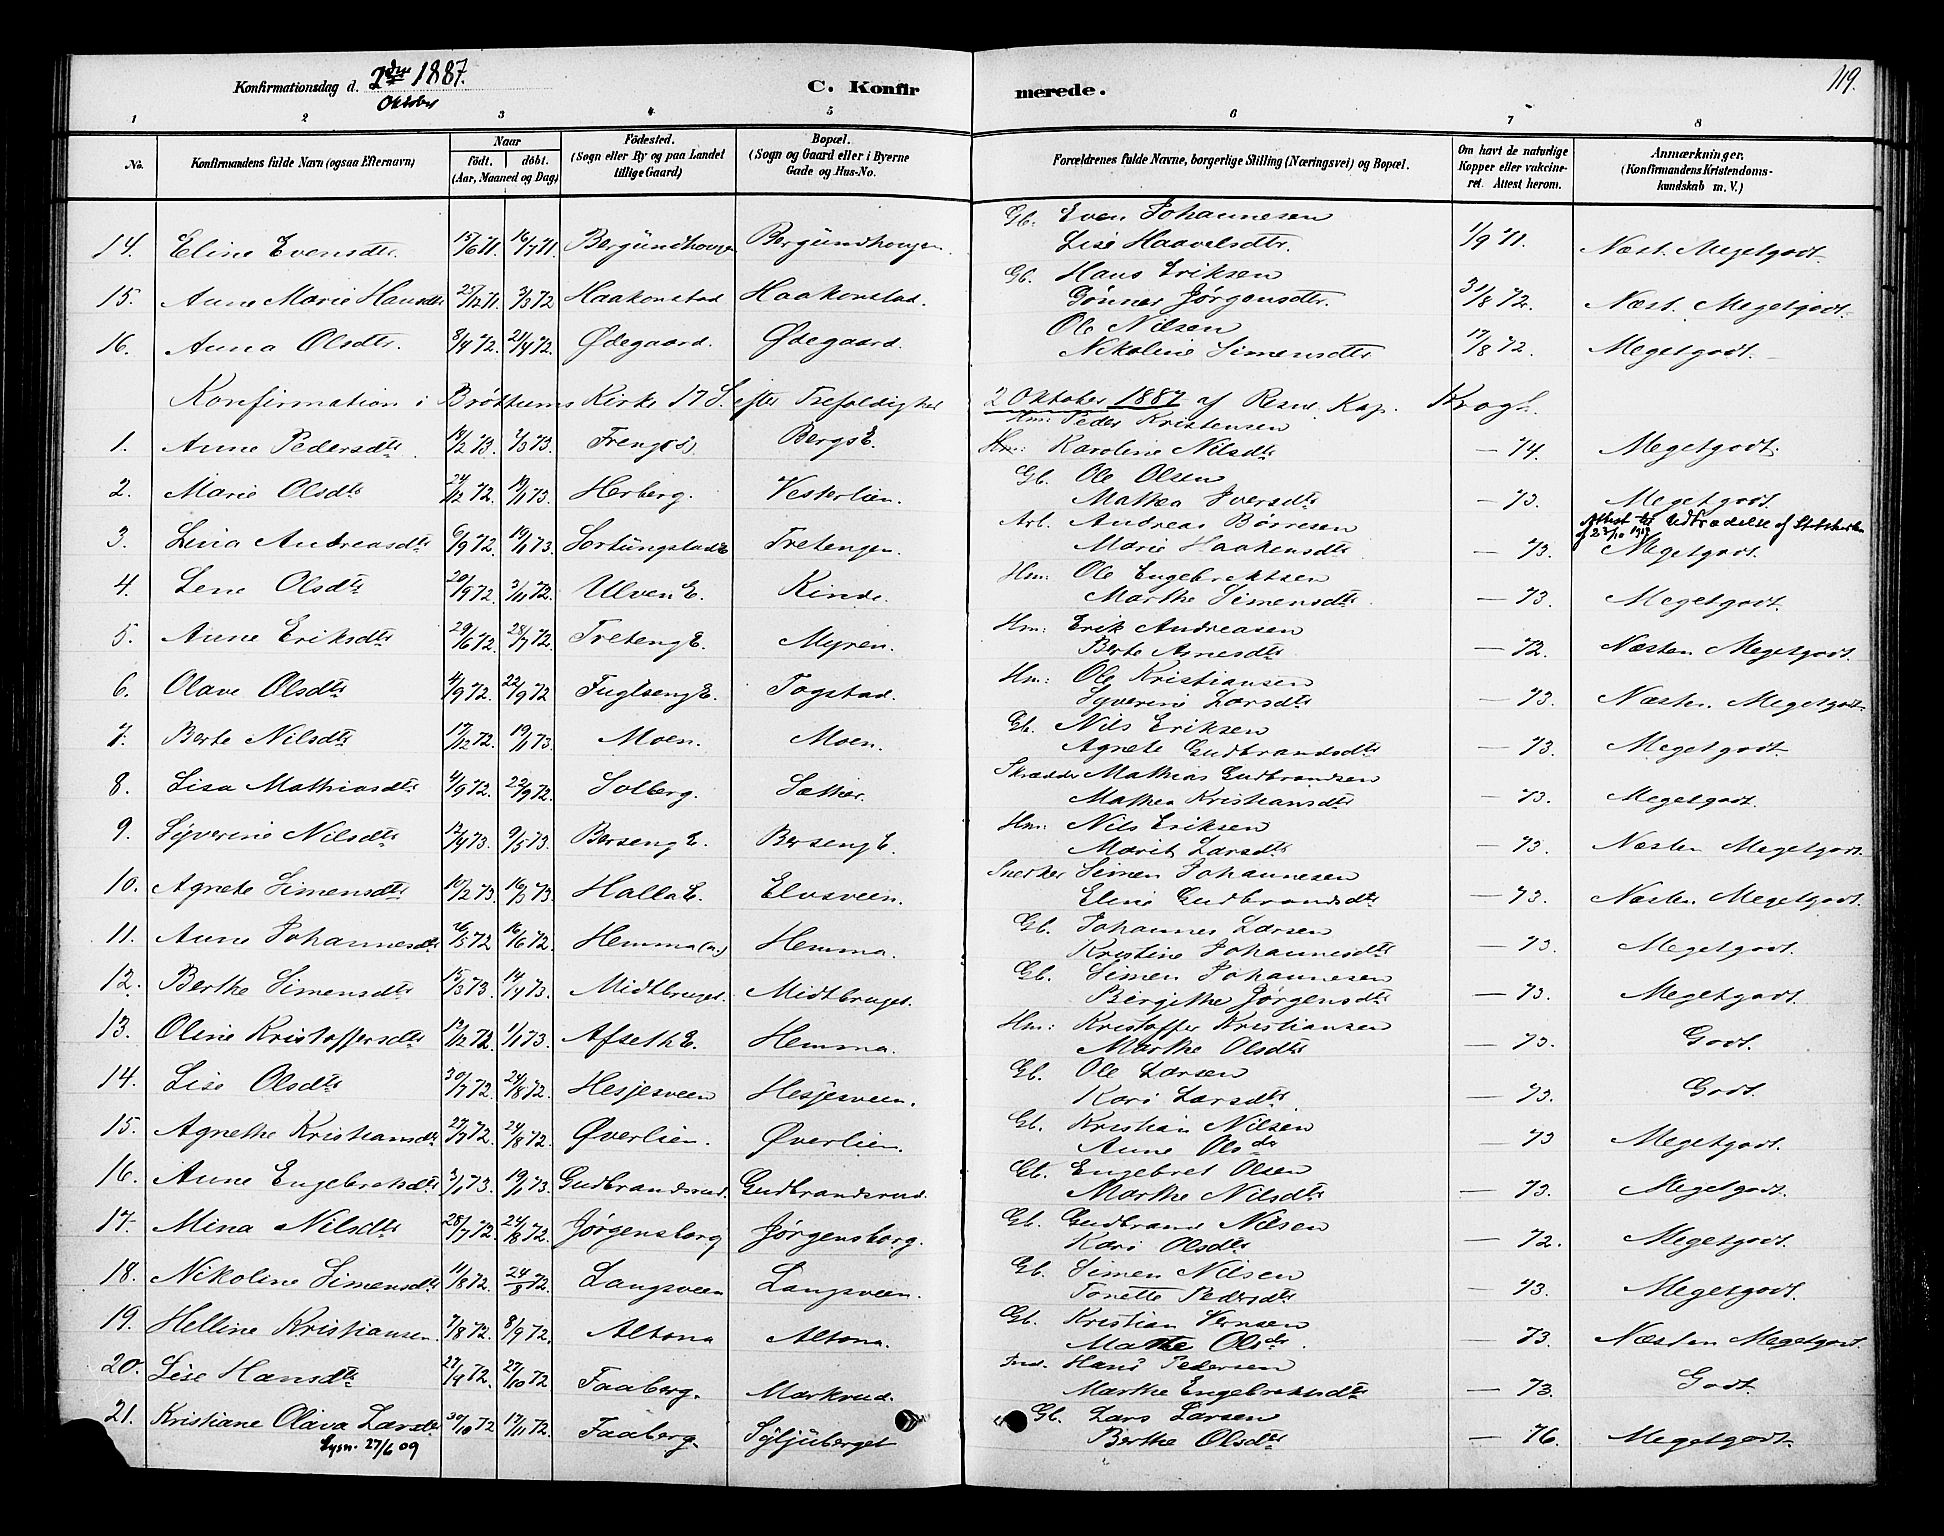 Konfirmationsdag d. 2den Oktober 1887. C. Konfirmerede. 119.
1 2 3 4 5 6 7 8
No. Konfirmandens fulde Navn (ogsaa Efternavn) Naar födt. döbt. (Aar, Maaned og Dag) Födested. (Sogn eller By og paa Landet tillige Gaard) Bopæl. (Sogn og Gaard eller i Byerne Gade og Hus-No. Forældrenes fulde Navne, borgerlige Stilling (Næringsvei) og Bopæl. Om havt de naturlige Kopper eller vakcineret. Attest herom. Anmærkninger. (Konfirmandens Kristendomskundskab m. V.)
14. Eline Evensdtr. 15/6 71. 16/7 71. Bergundhougen Bergundhougen. Gb. Even Johannesen
Lise Haavelsdtr. 1/9 71. Næst. Megetgodt.
15. Anne Marie Hansdtr 25/12 71. 3/3 72 Haakonstad Haakonstad. Gb. Hans Eriksen
Gønner Jørgensdtr. 31/8 72. Næst. Megetgodt.
16. Anna Olsdtr. 8/4 72. 21/4 72. Ødegaard. Ødegaard. Ole Nilsen
Nikoline Simensdtr 17/8 72. Megetgodt.
Konfirmation i Brøttums Kirke 17 S. efter Trefoldighed 2 Oktober 1887 af Resid. Kap. Krogh.
1. Anne Pedersdtr 14/2 73. 2/3 73. Bergs E. Hm: Peder Kristensen
Karoline Nilsdtr — 74. Megetgodt.
2. Marie Olsdtr 24/12 72. 19/1 73. Herberg. Vesterlien. Gb. Ole Olsen
Mathea Iversdtr — 73. Megetgodt.
Attest til Udtrædelse af Statskirken
3. Lina Andreasdtr 6/9 72. 19/1 73. Sortungstad E Tretengen. Arb. Andreas Børresen
Marie Haakensdtr — 73. Megetgodt.
4. Lene Olsdtr 20/9 72. 3/11 72. Ulven E. Kinde. Hm: Ole Engebrektsen
Marthe Simensdtr. — 73. Megetgodt.
5. Anne Eriksdtr 29/6 72. 28/7 72. Treteng E. Myren. Hm: Erik Andreasen
Berte Arnesdtr — 72. Næsten Megetgodt.
6. Olave Olsdtr 4/9 72. 22/9 72 Fuglseng E. Togstad. Hm: Ole Kristiansen
Syverine Larsdtr — 73. Næsten Megetgodt.
7. Berte Nilsdtr 17/12 72. 19/1 73. Moen. Moen. Gb. Nils Eriksen
Agnete Gudbrandsdtr — 73. Megetgodt.
8. Lisa Mathiasdtr 4/9 72. 22/9 72. Solberg. Sæther. Skrædder Mathias Gudbrandsen
Mathea Kristiansdtr — 73. Megetgodt.
9. Syverine Nilsdtr 12/4 73. 9/5 73. Berseng E. Berseng E. Hm: Nils Eriksen
Marit Larsdtr — 73. Næsten Megetgodt.
10. Agnete Simensdtr 10/2 73. 16/3 73. Halla E. Elvsveen. Snedker Simen Johannesen
Eline Gudbrandsdtr — 73. Næsten Megetgodt.
11. Anne Johannesdtr 16/5 72 16/6 72. Hemma Hemma. Gb. Johannes Larsen
Kristine Johannesdtr — 73. Megetgodt.
12. Berthe Simensdtr 15/3 73. 14/4 73. Midtbruget. Midtbruget. Gb. Simen Johannesen
Birgithe Jørgensdtr — 73. Megetgodt.
13. Oline Kristoffersdtr 12/12 72. 1/1 73. Afseth E. Hemma. Hm: Kristoffer Kristiansen
Marthe Olsdtr — 73. Godt.
14. Lise Olsdtr 30/7 72. 24/8 72. Hesjesveen Hesjesveen. Gb. Ole Larsen
Kari Larsdtr. — 73. Godt.
15. Agnethe Kristiansdtr 27/7 72. 24/8 72. Øverlien. Øverlien. Gb. Kristian Nilsen
Anne Olsdr — 73 Megetgodt.
16. Anne Engebretsdtr 3/1 73. 19/1 73. Gudbrandsrud. Gudbrandsrud. Gb. Engebret Olsen
Marthe Nilsdtr — 73. Megetgodt.
17. Mina Nilsdtr 28/7 72. 24/8 72. Jørgensborg Jørgensborg. Gb. Gudbrand Nilsen
Kari Olsdtr — 72. Megetgodt.
18. Nikoline Simensdtr 11/8 72. 24/8 72. Langsveen Langsveen. Gb. Simen Nilsen
Tonette Pedersdtr — 73. Megetgodt.
19. Helline Kristiansen. 7/8 72. 8/9 72. Altona Altona. Gb. Kristian Iversen
Mathe Olsdr. — 73. Næsten Megetgodt.
20. Lise Hansdtr 27/9 72. 27/10 72 Faaberg. Markrud. Ind. Hans Pedersen
Marthe Engebretsdtr — 73. Godt.
21. Kristiane Olava Larsdtr 30/10 72 17/11 72. Faaberg. Syljuberget Gb. Lars Larsen
Lysn. 27/6 09 Berthe Olsdtr — 76. Megetgodt.